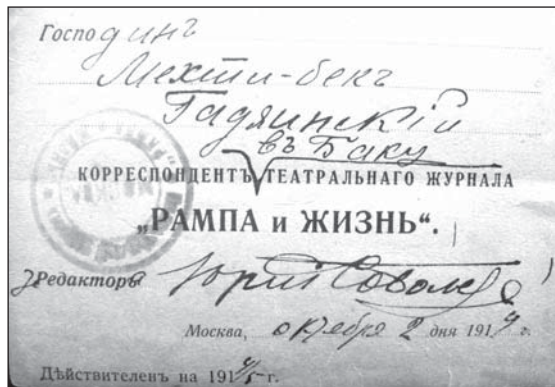 Господинъ
Мехти-бекъ
Гаджинскій
въ Баку
КОРРЕСПОНДЕНТЪ ТЕАТРАЛЬНАГО ЖУРНАЛА
„РАМПА и ЖИЗНЬ“.
Редакторъ Юрий Соболев
Москва, октября 2 дня 1914 г.
Дѣйствителенъ на 1914/5 г.